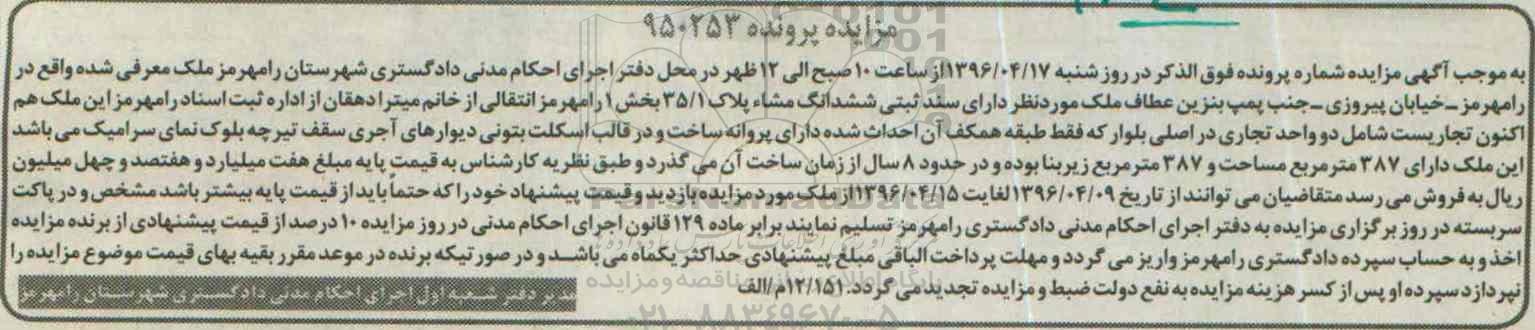 مزایده پرونده ۹۵۰۲۵۳
به موجب آگهی مزایده شماره پرونده فوق الذکر در روز شنبه ۱۳۹۶/۰۴/۱۷ از ساعت ۱۰ صبح الی ۱۲ ظهر در محل دفتر اجرای احکام مدنی دادگستری شهرستان رامهرمز ملک معرفی شده واقع در
رامهرمز ـ خیابان پیروزی ـ جنب پمپ بنزین عطاف ملک موردنظر دارای سند ثبتی ششدانگ مشاء پلاک ۳۵/۱ بخش ۱ رامهرمز انتقالی از خانم میترا دهقان از اداره ثبت اسناد رامهرمز این ملک هم
اکنون تجاریست شامل دو واحد تجاری در اصلی بلوار که فقط طبقه همکف آن احداث شده دارای پروانه ساخت و در قالب اسکلت بتونی دیوارهای آجری سقف تیرچه بلوک نمای سرامیک می باشد
این ملک دارای ۳۸۷ مترمربع مساحت و ۳۸۷ مترمربع زیربنا بوده و در حدود ۸ سال از زمان ساخت آن می گذرد و طبق نظریه کارشناس به قیمت پایه مبلغ هفت میلیارد و هفتصد و چهل میلیون
ریال به فروش می رسد متقاضیان می توانند از تاریخ ۱۳۹۶/۰۴/۰۹ لغایت ۱۳۹۶/۰۴/۱۵ از ملک مورد مزایده بازدید و قیمت پیشنهاد خود را که حتماً باید از قیمت پایه بیشتر باشد مشخص و در پاکت
سربسته در روز برگزاری مزایده به دفتر اجرای احکام مدنی دادگستری رامهرمز تسلیم نمایند برابر ماده ۱۲۹ قانون اجرای احکام مدنی در روز مزایده ۱۰ درصد از قیمت پیشنهادی از برنده مزایده
اخذ و به حساب سپرده دادگستری رامهرمز واریز می گردد و مهلت پرداخت الباقی مبلغ پیشنهادی حداکثر یکماه می باشد و در صورتیکه برنده در موعد مقرر بقیه بهای قیمت موضوع مزایده را
نپردازد سپرده او پس از کسر هزینه مزایده به نفع دولت ضبط و مزایده تجدید می گردد. ۱۲/۱۵۱/م/الف
مدیر دفتر شعبه اول اجرای احکام مدنی دادگستری شهرستان رامهرمز
۰۲۱-۸۸۳۴۹۶۷۰-۵